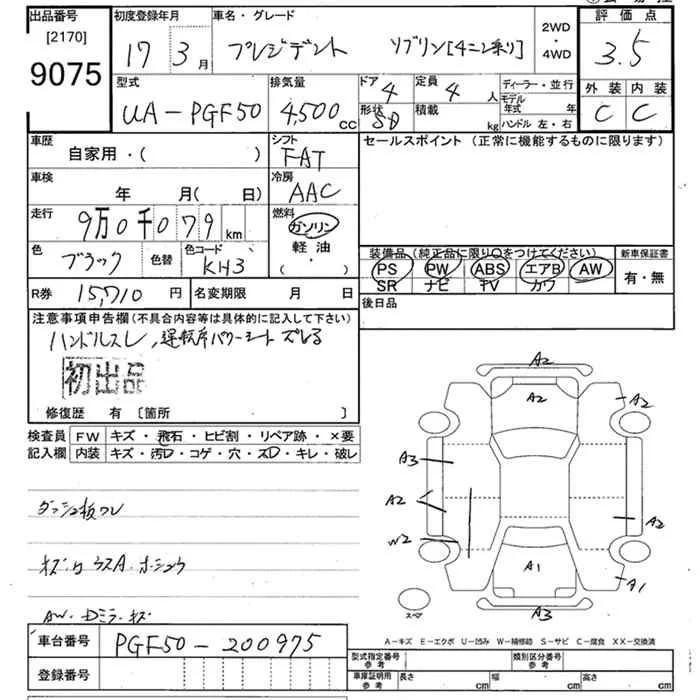 出品番号 初度登録年月 車名・グレード 2WD・4WD 評価点
[2170]
9075 17 3月 プレジデント ソブリン[4ニン乗り] 3.5
型式 排気量 ドア 4 定員 4人 ディーラー・並行 外装 内装
UA-PGF50 4,500cc 形状 SD 積載 kg モデル年式 年 C C
ハンドル 左・右
車歴 シフト セールスポイント (正常に機能するものに限ります)
自家用・( ) FAT
車検 冷房
年 月( 日) AAC
走行 9万0千079km 燃料
ガソリン
色 ブラック 色替 色コード KH3 軽油・( )
装備品 (純正品に限り○をつけてください) 新車保証書
PS PW ABS エアB AW 有・無
SR ナビ TV カワ
R券 15,710円 名変期限 月 日 後日品
注意事項申告欄 (不具合内容等は具体的に記入して下さい)
ハンドルスレ,運転席パワーシート ズレる
初出品
修復歴 有 [箇所 ]
検査員記入欄 FW キズ・飛石・ヒビ割・リペア跡・×要
内装 キズ・汚D・コゲ・穴・スD・キレ・破レ
A2
A2
A2
A3
A2
A2
W2
A1
A1
A3
スペア
ダッシュ板ワレ
キズ
AW・Dミラーキズ
A-キズ E-エクボ U-凹み W-補修跡 S-サビ C-腐食 XX-交換済
車台番号 PGF50-200975
型式指定番号 参考 類別区分番号 参考
登録番号
車庫証明用 参考 長さ cm 幅 cm 高さ cm